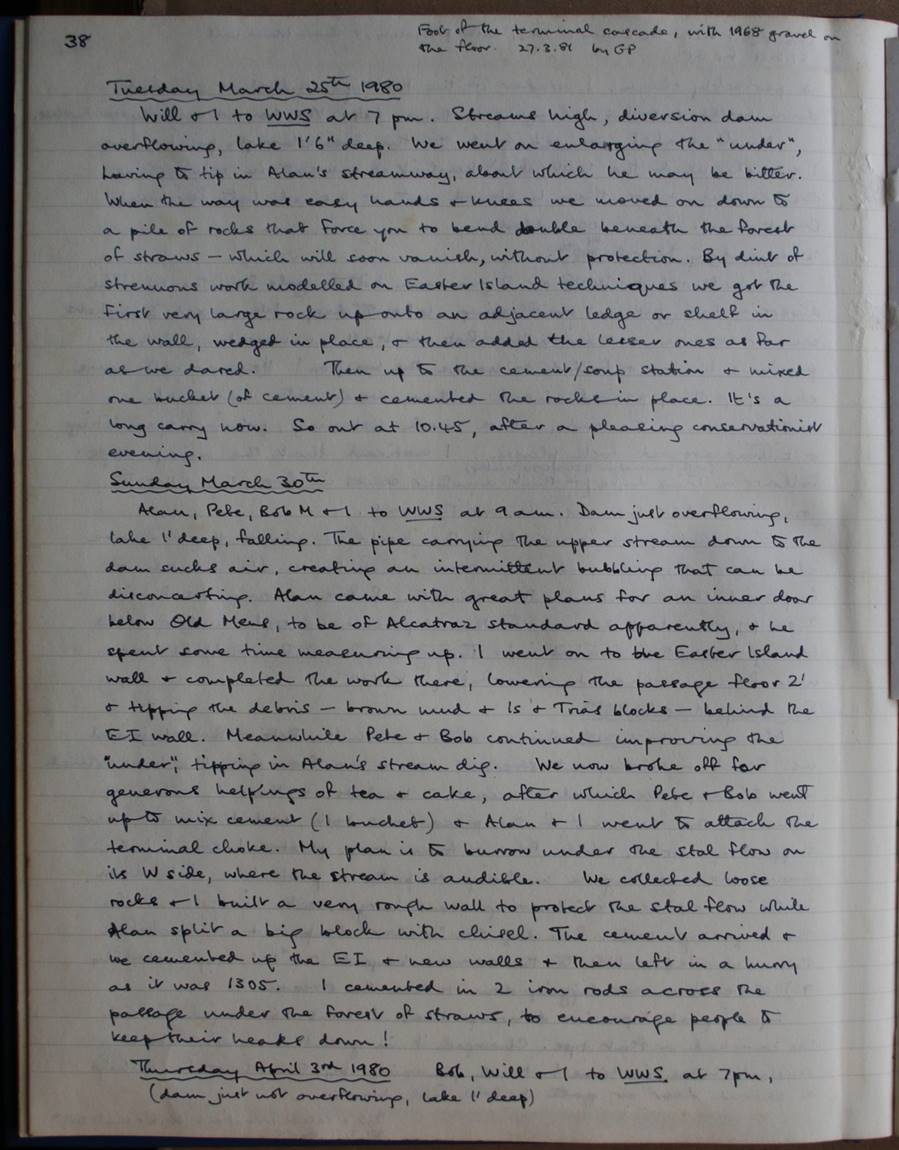 38
Foot of the terminal cascade, with 1968 gravel on
the floor. 27.3.81 by GP
Tuesday March 25th 1980
Will & I to WWS at 7 pm. Streams high, diversion dam
overflowing, lake 1'6" deep. We went on enlarging the "under",
having to tip in Alan's streamway, about which he may be bitter.
When the way was easy hands & knees we moved on down to
a pile of rocks that force you to bend double beneath the forest
of straws – which will soon vanish, without protection. By dint of
strenuous work modelled on Easter Island techniques we got the
first very large rock up onto an adjacent ledge or shelf in
the wall, wedged in place, & then added the lesser ones as far
as we dared. Then up to the cement/soup station & mixed
one bucket (of cement) & cemented the rocks in place. It's a
long carry now. So out at 10.45, after a pleasing conservationist
evening.
Sunday March 30th
Alan, Pete, Bob M & I to WWS at 9 am. Dam just overflowing,
lake 1' deep, falling. The pipe carrying the upper stream down to the
dam sucks air, creating an intermittent bubbling that can be
disconcerting. Alan came with great plans for an inner door
below Old Mens, to be of Alcatraz standard apparently, & he
spent some time measuring up. I went on to the Easter Island
wall & completed the work there, lowering the passage floor 2'
& tipping the debris – brown mud & ls & Trias blocks – behind the
EI wall. Meanwhile Pete & Bob continued improving the
"under", tipping in Alan's stream dig. We now broke off for
generous helpings of tea & cake, after which Pete & Bob went
up to mix cement (1 bucket) & Alan & I went to attack the
terminal choke. My plan is to burrow under the stal flow on
its W side, where the stream is audible. We collected loose
rocks & I built a very rough wall to protect the stal flow while
Alan split a big block with chisel. The cement arrived &
we cemented up the EI & new walls & then left in a hurry
as it was 1305. I cemented in 2 iron rods across the
passage under the forest of straws, to encourage people to
keep their heads down!
Thursday April 3rd 1980 Bob, Will & I to WWS at 7pm,
(dam just not overflowing, lake 11" deep)